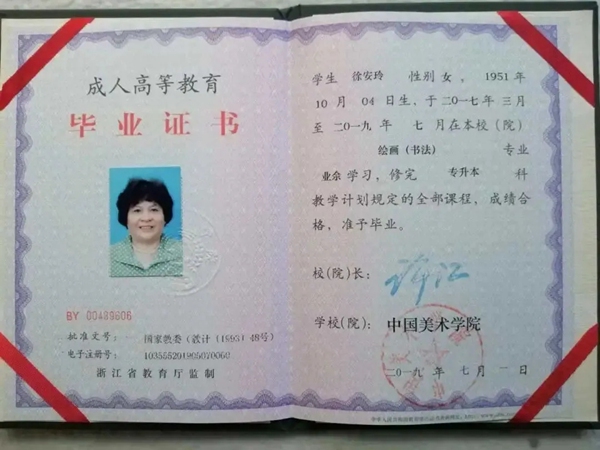 成人高等教育
毕业证书
BY 00489806
批准文号: 国家教委(教计(1993)48号)
电子注册号:
浙江省教育厅监制
学生 徐安玲 性别 女,1951年
10月04日生,于二〇一七年三月
至二〇一九年 七月在本校(院)
绘画(书法) 专业
业余学习,修完 专升本 科
教学计划规定的全部课程,成绩合
格,准予毕业。
校(院)长: 许江
学校(院): 中国美术学院
二〇一九年 七月 一日